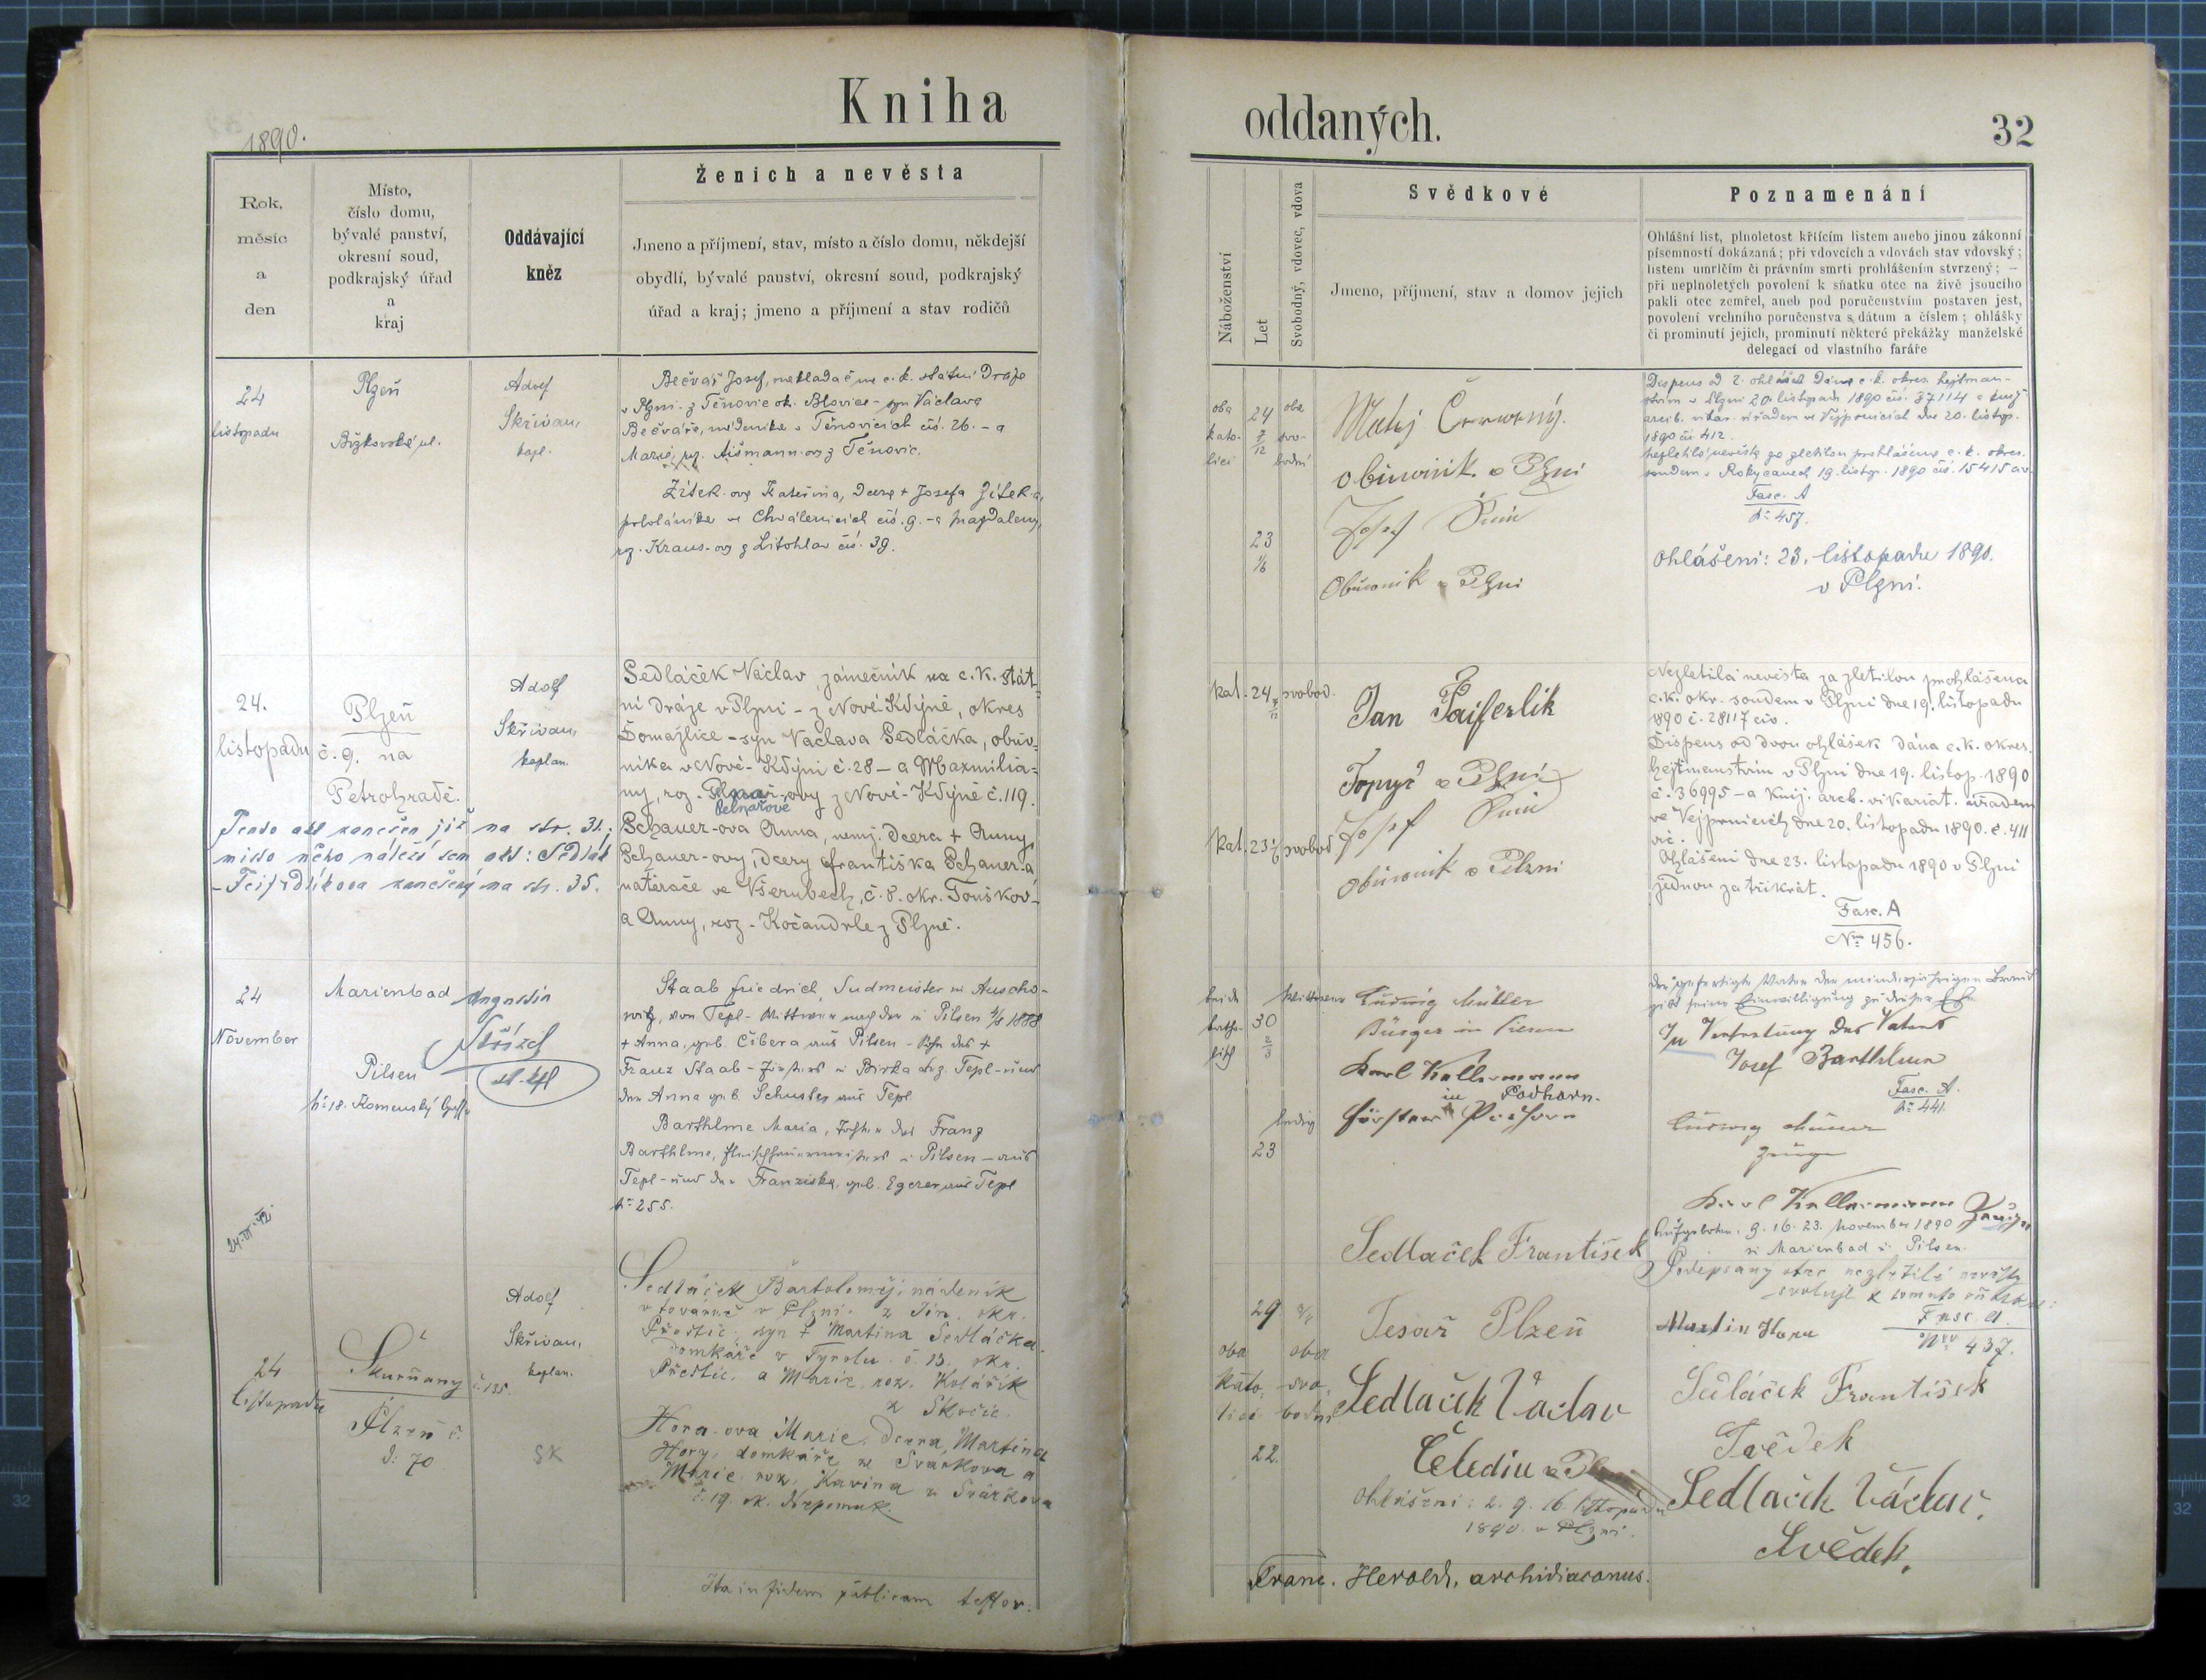 Kniha
1890.
Rok,
měsíc
a
den
Místo,
číslo domu,
bývalé panství,
okresní soud,
podkrajský úřad
a
kraj
Oddávající
kněz
Ženich a nevěsta
Jmeno a příjmení, stav, místo a číslo domu, někdejší
obydlí, bývalé panství, okresní soud, podkrajský
úřad a kraj; jmeno a příjmení a stav rodičů
24
listopadu
Plzeň
Adolf
Skřivan,
kapl.
Bečvář Josef, nakladač na c. k. státní Dráze
v Plzni - z Těnovic ok. Blovice - syn Václava
Bečváře, nádeníka v Těnovicích čís. 26. - a
Marie, roz. Aišmann-ovy z Těnovic.
Žítek-ova Kateřina, Dcera + Josefa Žítek-a,
ve Chválenicích čís. 9. - a Magdaleny,
roz. Kraus-ovy z Litohlav čís. 39.
24.
listopadu
Plzeň
č. 9. na
Petrohradě.
Adolf
Skřivan,
kaplan.
Sedláček Václav, zámečník na c. k. stát=
ní dráze v Plzni - z Nové-Kdyně, okres
Domažlice - syn Václava Sedláčka, obuv=
níka v Nové-Kdyni č. 28 - a Maxmilia=
ny, roz. -ovy z Nové-Kdyně č. 119.
Pelnařové
Schauer-ova Anna, nemj. dcera + Anny
Schauer-ovy, dcery Františka Schauer-a
natěrače ve Všerubech, č. 8. okr. Touškov -
a Anny, roz. Kočandrle z Plzně.
Tento akt zanešen již na str. 31.;
místo něho náleží sem akt: Sedlák
zanešený na str. 35.
24
November
Marienbad
Pilsen
No 18. Komenský
Augustin
st. kpl
Staab Friedrich, Sudmeister in Auscho-
witz, von Tepl - Wittwer nach der in Pilsen 1888
+ Anna, geb. Cibera aus Pilsen - Sohn des +
Franz Staab - Försters in Birka bez. Tepl - und
der Anna geb. Schuster aus Tepl
Barthlme Maria, Tochter des Franz
Barthlme, Fleischhauermeisters in Pilsen - aus
Tepl - und der Franziska, geb. Egerer aus Tepl
No 255.
24
listopadu
Skurňany
č. 135.
Plzeň č.
d. 70
Adolf
Skřivan,
kaplan.
SK
Sedláček Bartoloměj, nádeník
v továrně v Plzni. z Jín. okr.
Přeštic, syn + Martina Sedláčka
domkáře v Tyrolu č. 13. okr.
Přeštic, a Marie, roz. Kolářík
z Skočic.
Hora-ova Marie, Dcera Martina
Hory, domkáře ze Svarkova a
Marie roz. Kavina z Svárkova
č. 19. ok. Nepomuk.
Ita in fidem publicam testor.
oddaných.
32
Náboženství
Let
Svobodný, vdovec, vdova
Svědkové
Jmeno, příjmení, stav a domov jejich
Poznamenání
Ohlášní list, plnoletost křticím listem anebo jinou zákonní
písemností dokázaná; při vdovcích a vdovách stav vdovský;
listem umrlčím či právním smrti prohlášením stvrzený; —
při neplnoletých povolení k sňatku otce na živě jsoucího
pakli otec zemřel, aneb pod poručenstvím postaven jest,
povolení vrchního poručenstva s dátum a číslem; ohlášky
či prominutí jejich, prominutí některé překážky manželské
delegací od vlastního faráře
oba
kato-
líci
24
7/12
oba
svo-
bodní
23
1/6
Matěj Červený.
obuvník v Plzni
Josef
Obuvník v Plzni
Dispens od 2. ohlášek Dána c. k. okres. hejtman-
stvím v Plzni 20. listopadu 1890 čís. 37114 a kníž.
arcib. vikar. úřadem ve Vejprnicích dne 20. listop.
1890 čís. 412.
Nezletilá nevěsta za zletilou prohlášena c. k. okres.
soudem v Rokycanech 19. listop. 1890 čís. 15415 civ.
Fasc. A
No 457.
Ohlášeni: 23. listopadu 1890.
v Plzni.
kat. 24 7/12 svobod.
Jan
Topič v Plzni
Josef
kat. 23 svobod
Obuvník v Plzni
Nezletilá nevěsta za zletilou prohlášena
c. k. okr. soudem v Plzni dne 19. listopadu
1890 č. 28117 civ.
Dispens od dvou ohlášek dána c. k. okres.
hejtmanstvím v Plzni dne 19. listop. 1890
č. 36995 - a kníž. arcb. vikariát. úřadem
ve Vejprnicích dne 20. listopadu 1890. č. 411
vic.
Ohlášeni dne 23. listopadu 1890 v Plzni
jednou za třikrát.
Fasc. A
Nro 456.
beide
katho-
lisch
30
2/3
Wittwer
ledig
23
Ludwig Müller
Bürger in Pilsen
Karl Kallermann
in Podhorn.
Förster
Der gefertigte Vater der minderjährigen Braut
gibt seine Einwilligung zu dieser Ehe
In Vertretung des Vaters
Josef Barthlme
Fasc. A.
No 441.
Ludwig Müller
Zeuge
Karl Kallermann Zeuge
Aufgeboten: 9. 16. 23. November 1890
in Marienbad u. Pilsen.
29
oba
kato-
líci
oba
svo-
bodní
22.
Sedlaček František
Tesař Plzeň
Sedlaček Václav
Čeledín
Ohlášeni: 2. 9. 16. listopadu
1890. v Plzni.
Podepsaný otec nezletilé nevěsty
svoluje k tomuto sňatku:
Martin Hora
Fasc. A.
Nro 437.
Sedláček František
Svědek
Sedlaček Václav,
Svědek,
Franc. Herold, archidiaconus.